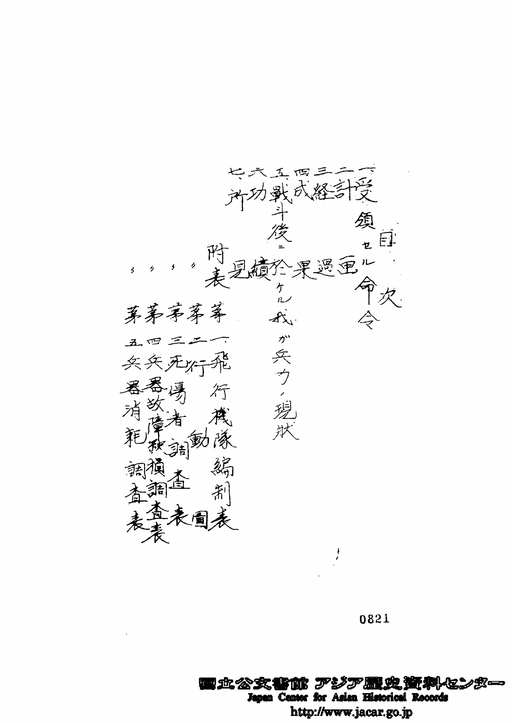 目次
一、受領セル命令
二、計画
三、経過
四、成果
五、戦斗後ニ於ケル我ガ兵力ノ現状
六、功績
七、所見
附表第一、飛行機隊編制表
〃第二、行動圖
〃第三、死傷者調査表
〃第四、兵器故障毀損調査表
〃第五、兵器消耗調査表
0821
国立公文書館 アジア歴史資料センター
Japan Center for Asian Historical Records
http://www.jacar.go.jp